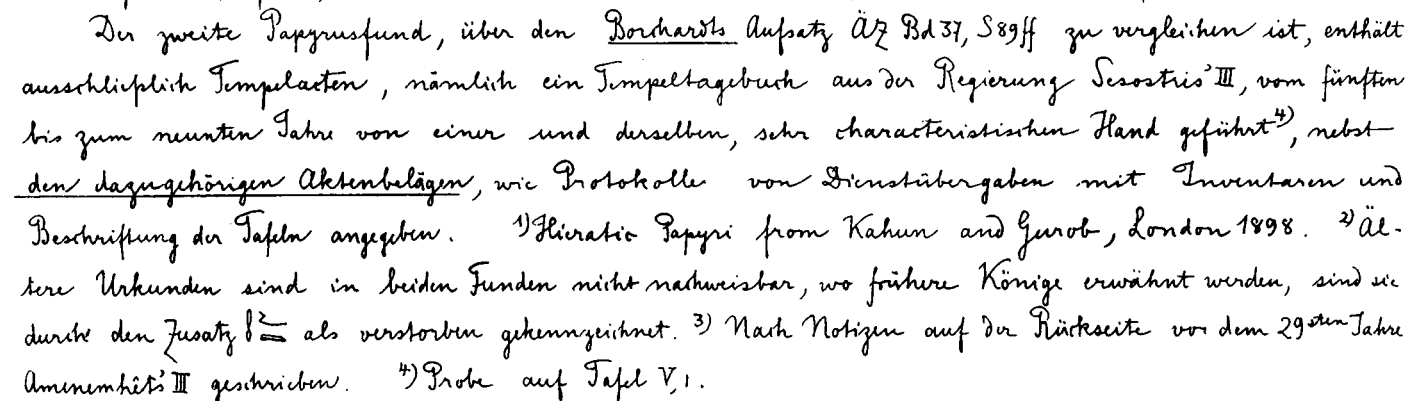 Der zweite Papyrusfund, über den Borchardts Aufsatz ÄZ Bd 37, S 89 ff zu vergleichen ist, enthält
ausschließlich Tempelacten, nämlich ein Tempeltagebuch aus der Regierung Sesostris' III, vom fünften
bis zum neunten Jahre von einer und derselben, sehr characteristischen Hand geführt⁴⁾, nebst
den dazugehörigen Aktenbelägen, wie Protokolle von Dienstübergaben mit Inventaren und
Beschriftung der Tafeln angegeben. ¹⁾ Hieratic Papyri from Kahun and Gurob, London 1898. ²⁾ Äl-
tere Urkunden sind in beiden Funden nicht nachweisbar, wo frühere Könige erwähnt werden, sind sie
durch den Zusatz als verstorben gekennzeichnet. ³⁾ Nach Notizen auf der Rückseite vor dem 29sten Jahre
Amenemhêts' III geschrieben. ⁴⁾ Probe auf Tafel V, 1.